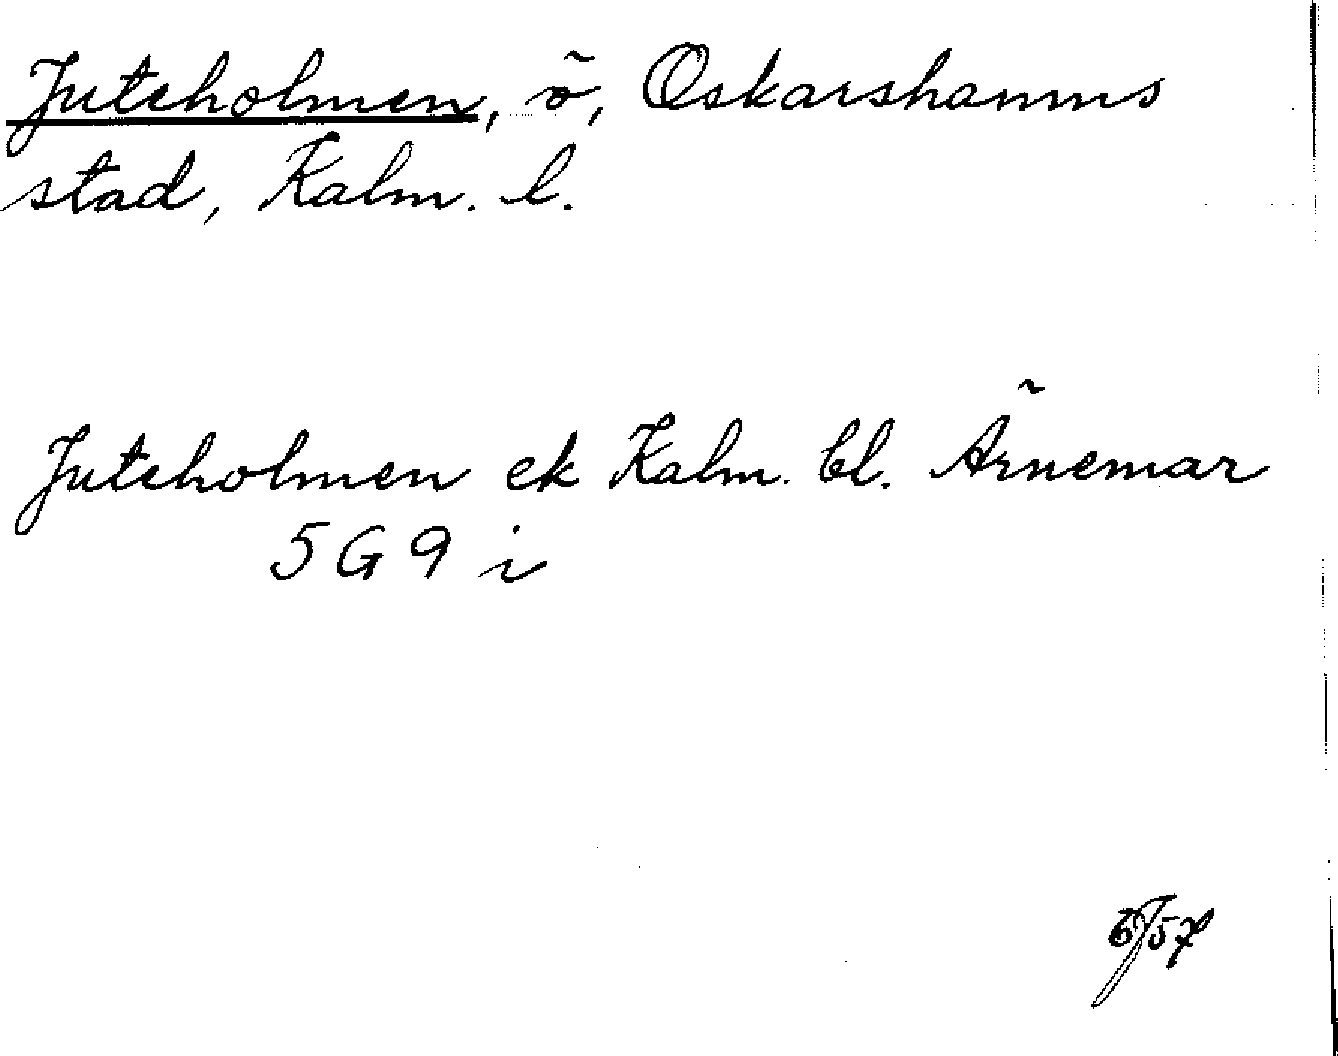 Juteholmen, ö, Oskarshamns
stad, Kalm. l.
Juteholmen ek Kalm. bl. Ärnemar
5 G 9 i